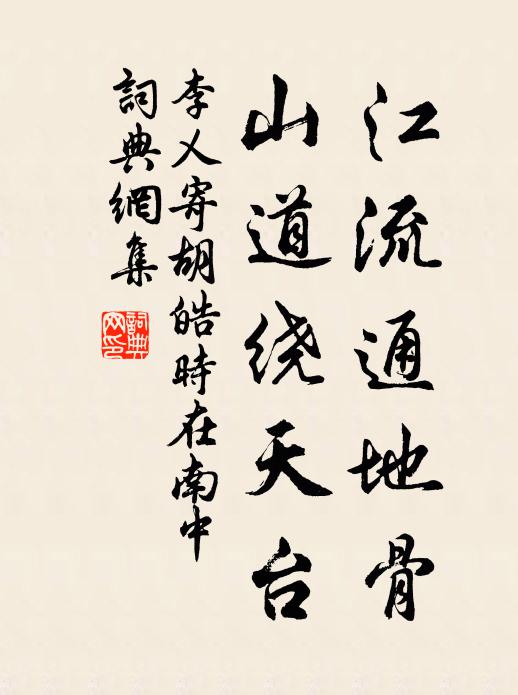 江流通地骨
山道绕天台
李乂寄胡皓時在南中
詞典網集
詞典
网印